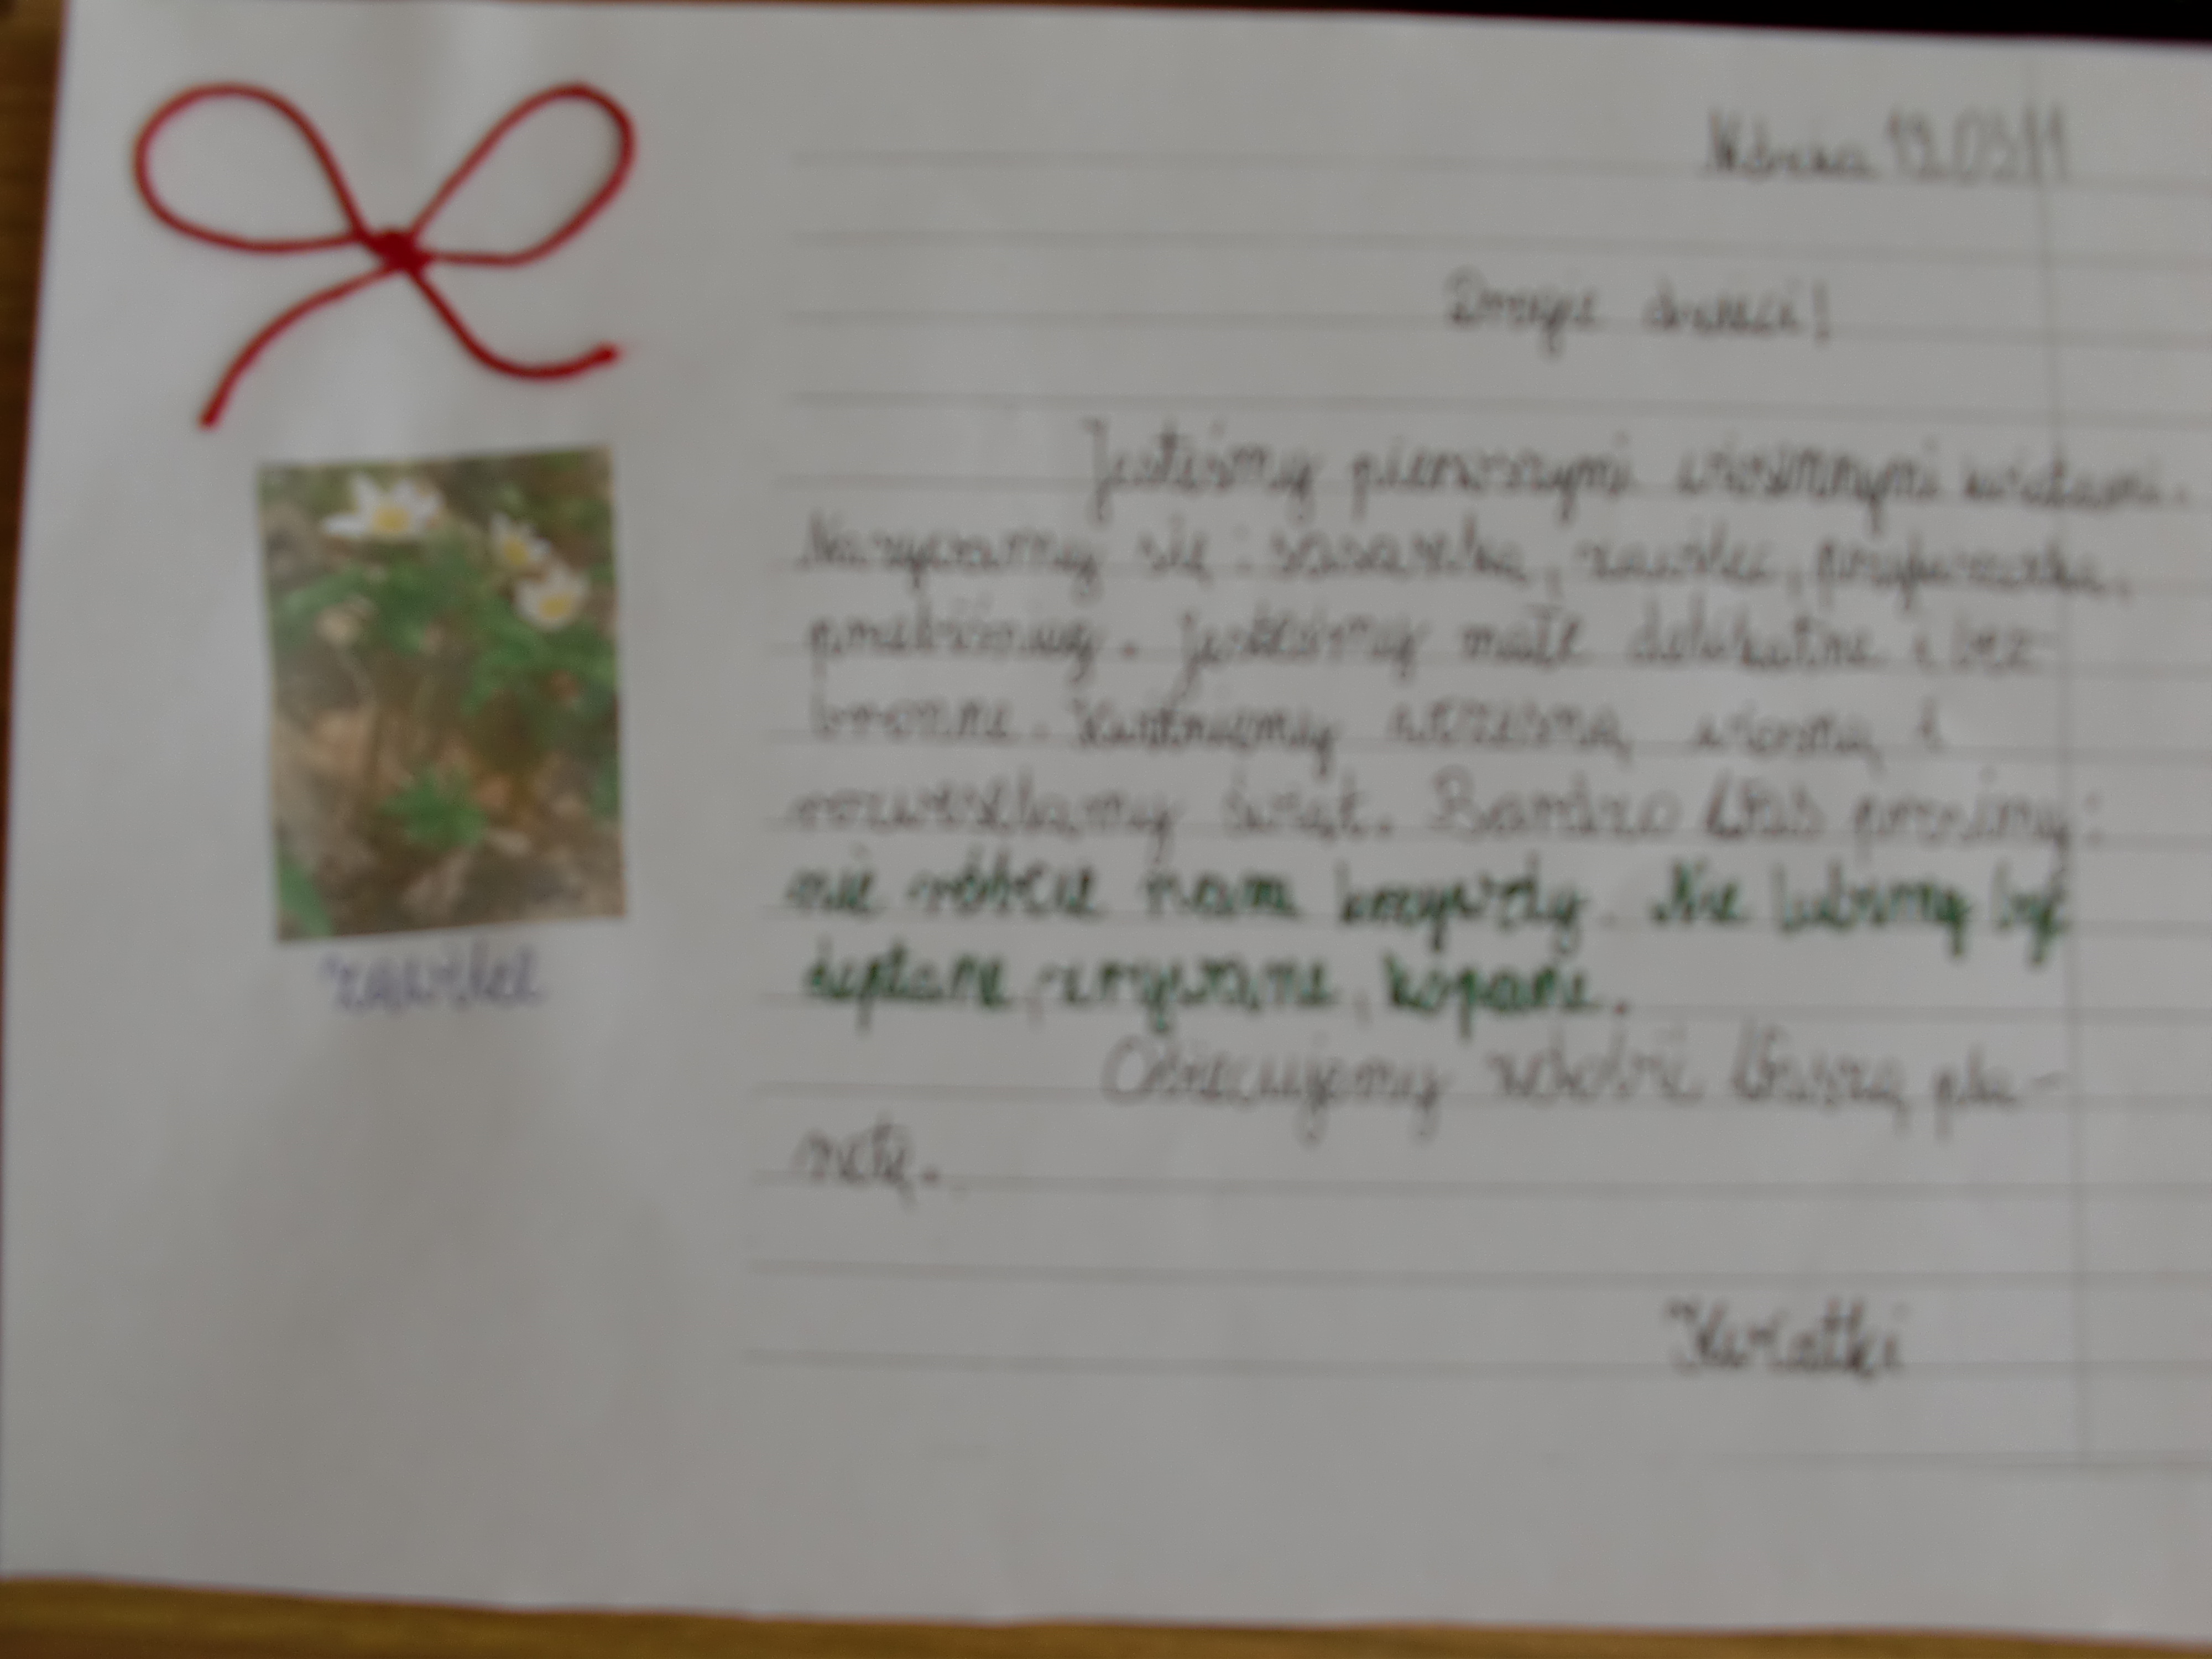 19.03
Drogie dzieci!
Jesteśmy pierwszymi wiosennymi kwiatami.
Nazywamy się: sasanka, zawilec, przylaszczka,
przebiśnieg. Jesteśmy małe delikatne i bez-
bronne. Kwitniemy wczesną wiosną i
rozweselamy świat. Bardzo Was prosimy:
nie róbcie nam krzywdy. Nie lubimy być
deptane, zrywane, kopane.
Obiecujemy zdobić Waszą pla-
netę.
Kwiatki
zawilec